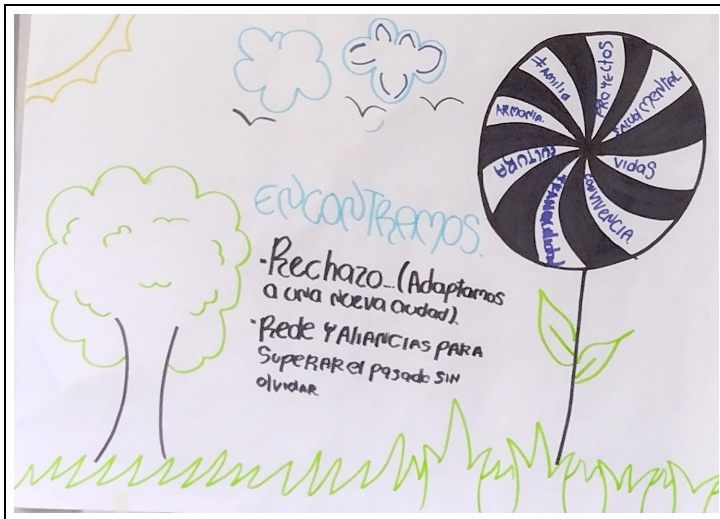 ENCONTRAMOS.
-Rechazo...(Adaptamos
a una nueva ciudad).
·Rede Y AliANCIAS PARA
SupeRAR el pasado SIN
olvidar
FAmiliA
PROYECTOS
SALUD MENTAL
VIdAS
CONVIVENCIA.
TRANQUilidad
CULTURA
ARMONIA.